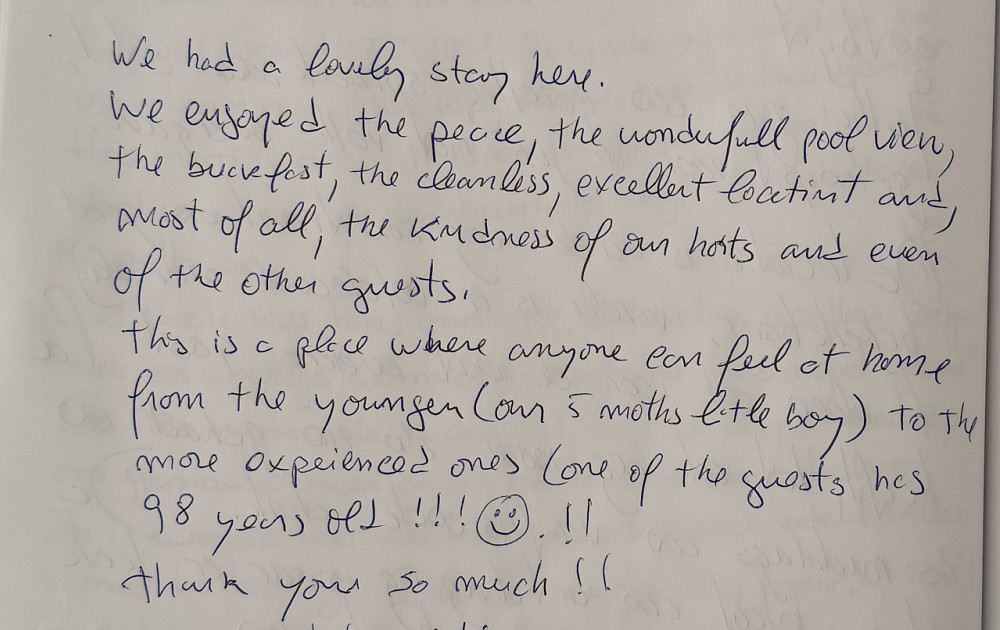 We had a lovely stay here.
We enjoyed the peace, the wonderfull pool view,
the buckfast, the cleanless, excellent locatint and,
most of all, the kindness of our hosts and even
of the other guests.
This is a place where anyone can feel at home
from the younger (our 5 moths little boy) to the
more expeienced ones (one of the guests has
98 years old !!! ☺. !!
thank you so much !!